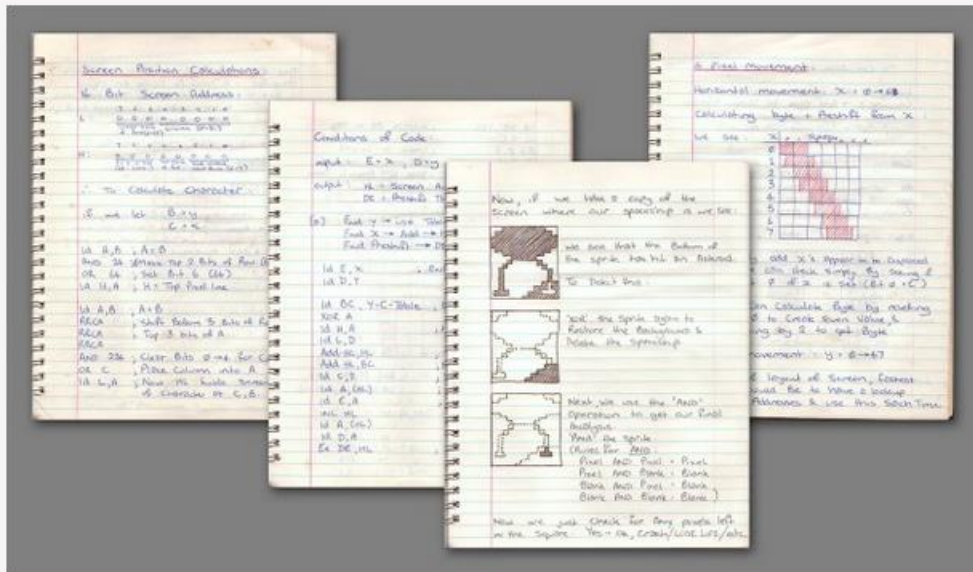 Screen Position Calculations
16 Bit Screen Address:
7 6 5 4 3 2 1 0
L:
7 6 5 4 3 2 1 0
H:
∴ To Calculate Character
if we let B = y
C = x
ld A,B ; A = B
AND 24 ;
OR 64 ; Set Bit 6 (64)
ld H,A ; H = Top Pixel line
ld A,B ; A = B
RRCA ; Shift Bottom 3 Bits of
RRCA ; Top 3 bits of A
RRCA
AND 224 ; Clear Bits 0→4 for
OR C ; Place Column into A
ld L,A ; Now HL holds Screen
of Character at C,B.
Conditions of Code:
input : E = x , D = y
output : HL = Screen
DE = Preshift
Find Y → use Table
Find X → Add →
Find Preshift →
ld E,X
ld D,Y
ld BC, Y-C-Table
XOR A
ld H,A
ld L,D
Add HL,HL
Add HL,BC
ld A,(HL)
ld C,A
INC HL
ld A,(HL)
ld D,A
Ex DE,HL
Now, if we take a copy of the
Screen where our spaceship is we see:
we see that the Bottom of
the sprite has hit an Asteroid.
To Detect this:
'XOR' the Sprite again to
Restore the Background &
Delete the Spaceship
Next, we use the 'AND'
Operation to get our final
Analysis.
'AND' the sprite
(Rules for AND:
Pixel AND Pixel = Pixel
Pixel AND Blank = Blank
Blank AND Pixel = Blank
Blank AND Blank = Blank)
Now we just Check for Any pixels left
in the Square. Yes = Crash/LOSE LIFE/etc.
Pixel Movement:
Horizontal movement: X = 0 →
Calculating byte + Preshift from X
we see: X
0
1
2
3
4
5
6
7
odd X's Appear to be Displaced
can check simply By seeing if
0 of X is Set (Bit 0 = C)
can Calculate Byte by masking
0 to Create Even Value, &
by 2 to get Byte
movement: Y = 0 →
layout of Screen, fastest
would be to have a lookup
Addresses & use this Each Time.